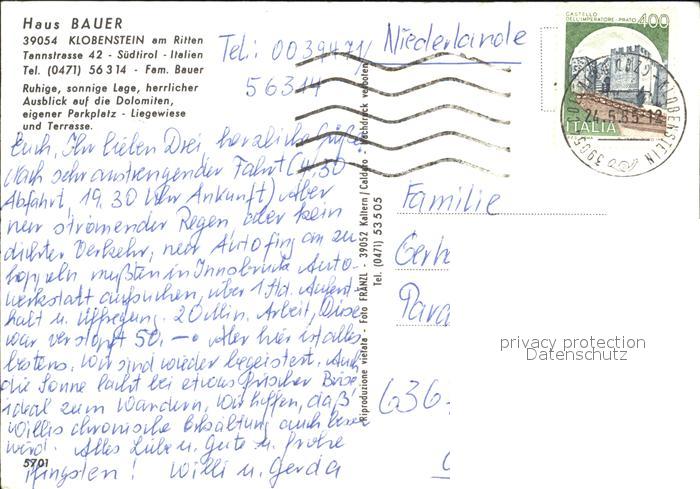 Haus BAUER
39054 KLOBENSTEIN am Ritten
Tannstrasse 42 - Südtirol - Italien
Tel. (0471) 56314 - Fam. Bauer
Ruhige, sonnige Lage, herrlicher
Ausblick auf die Dolomiten,
eigener Parkplatz - Liegewiese
und Terrasse.
Tel: 0039471/
56314
Euch, Ihr lieben Drei herzliche Grüße
Nach sehr anstrengender Fahrt (4,30
Abfahrt, 19.30 Uhr Ankunft) Aber
nur strömender Regen, oder kein
dichter Verkehr, nur Auto fing an zu
hoppeln mußten in Innsbruck Auto-
werkstatt aufsuchen, über 1 Std. Aufent-
halt u. Aufregung. 20 Min. Arbeit, Düse
war verstopft 50.- Aber hier ist alles
bestens. Wir sind wieder begeistert. Auch
die Sonne lacht bei etwas frischer Brise
ideal zum Wandern. Wir hoffen, daß
Willis chronische Erkältung auch besser
wird. Alles Liebe u. Gute u. frohe
Pfingsten! Willi u. Gerda
5701
Riproduzione vietata - Foto FRÄNZL - 39052 Kaltern/Caldaro - Nachdruck verboten
Tel. (0471) 53505
Niederlande
CASTELLO
DELL'IMPERATORE - PRATO
400
ITALIA
KLOBENSTEIN
24.5.85-12
Familie
Gerh
Para
636
privacy protection
Datenschutz